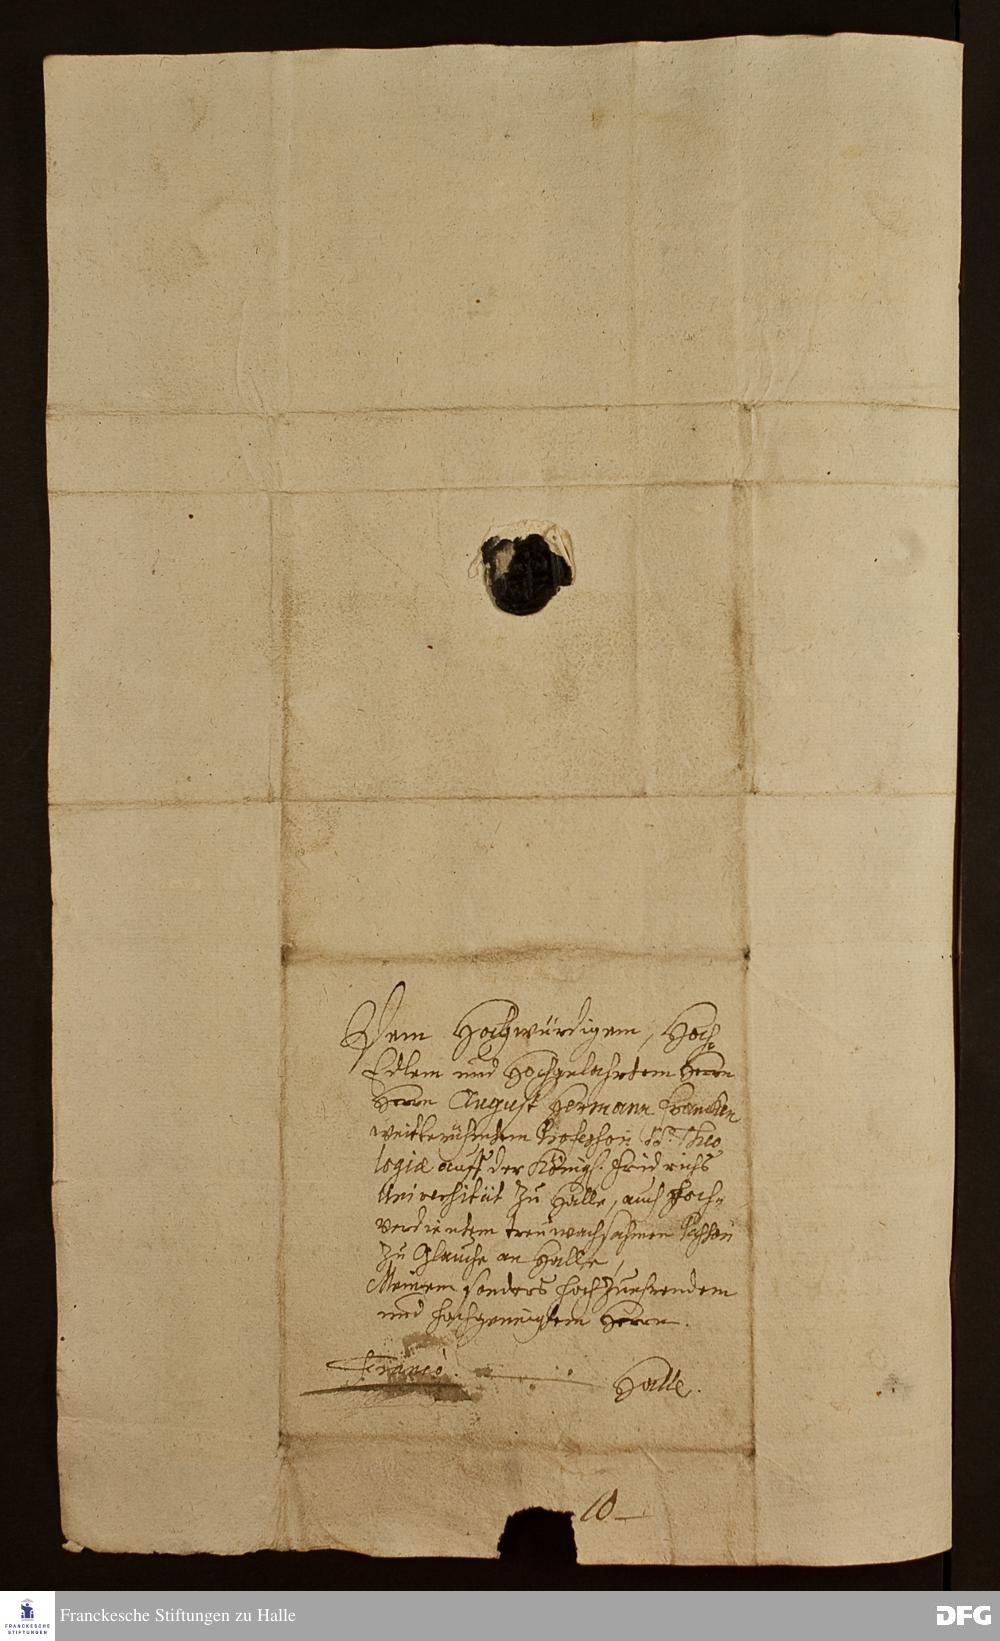 Dem Hochwürdigem, Hoch-
Edlem und Hochgelahrtem Herrn
Herrn August Hermann Francken
weitberühmtem Professori SS. Theo
logiæ auff der Königl. Fridrichs
Universität zu Halle, auch Hoch-
verdientem treuwachsahmen Pastori
zu Glauche an Halle,
Meinem sonders hochzuehrendem
und hochgeneigtem Herrn.
Franco. Halle.
10
FRANCKESCHE STIFTUNGEN
Franckesche Stiftungen zu Halle
DFG